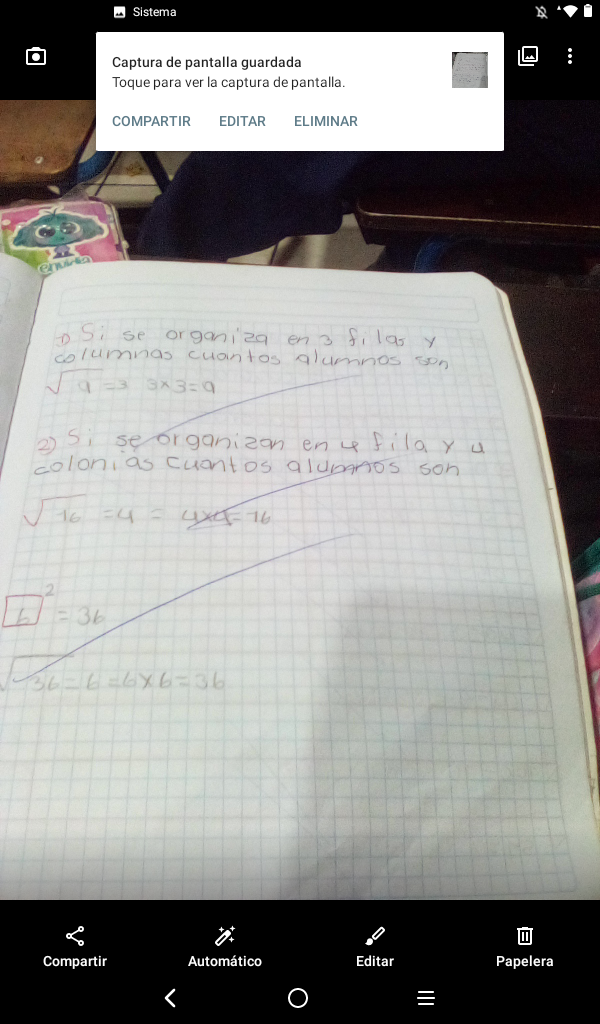 Sistema
Captura de pantalla guardada
Toque para ver la captura de pantalla.
COMPARTIR EDITAR ELIMINAR
envidia
1) Si se organiza en 3 filas y
columnas cuantos alumnos son
√9 = 3 3x3=9
2) Si se organizan en 4 fila y 4
colonias cuantos alumnos son
√16 = 4 = 4x4=16
6² = 36
√36=6=6x6=36
Compartir Automático Editar Papelera